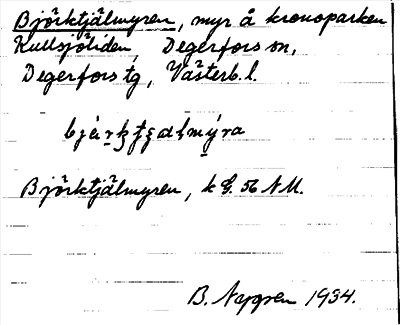 Björktjälmyren, myr å kronoparken
Kullsjöliden, Degerfors sn,
Degerfors tg, Västerb. l.
Björktjälmyren, k G. 56 NU.
B. Nygren 1934.